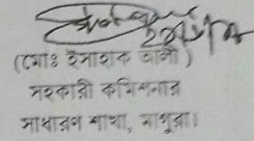 (মোঃ ইসাহাক আলী)
সহকারী কমিশনার
সাধারণ শাখা, মাগুরা।